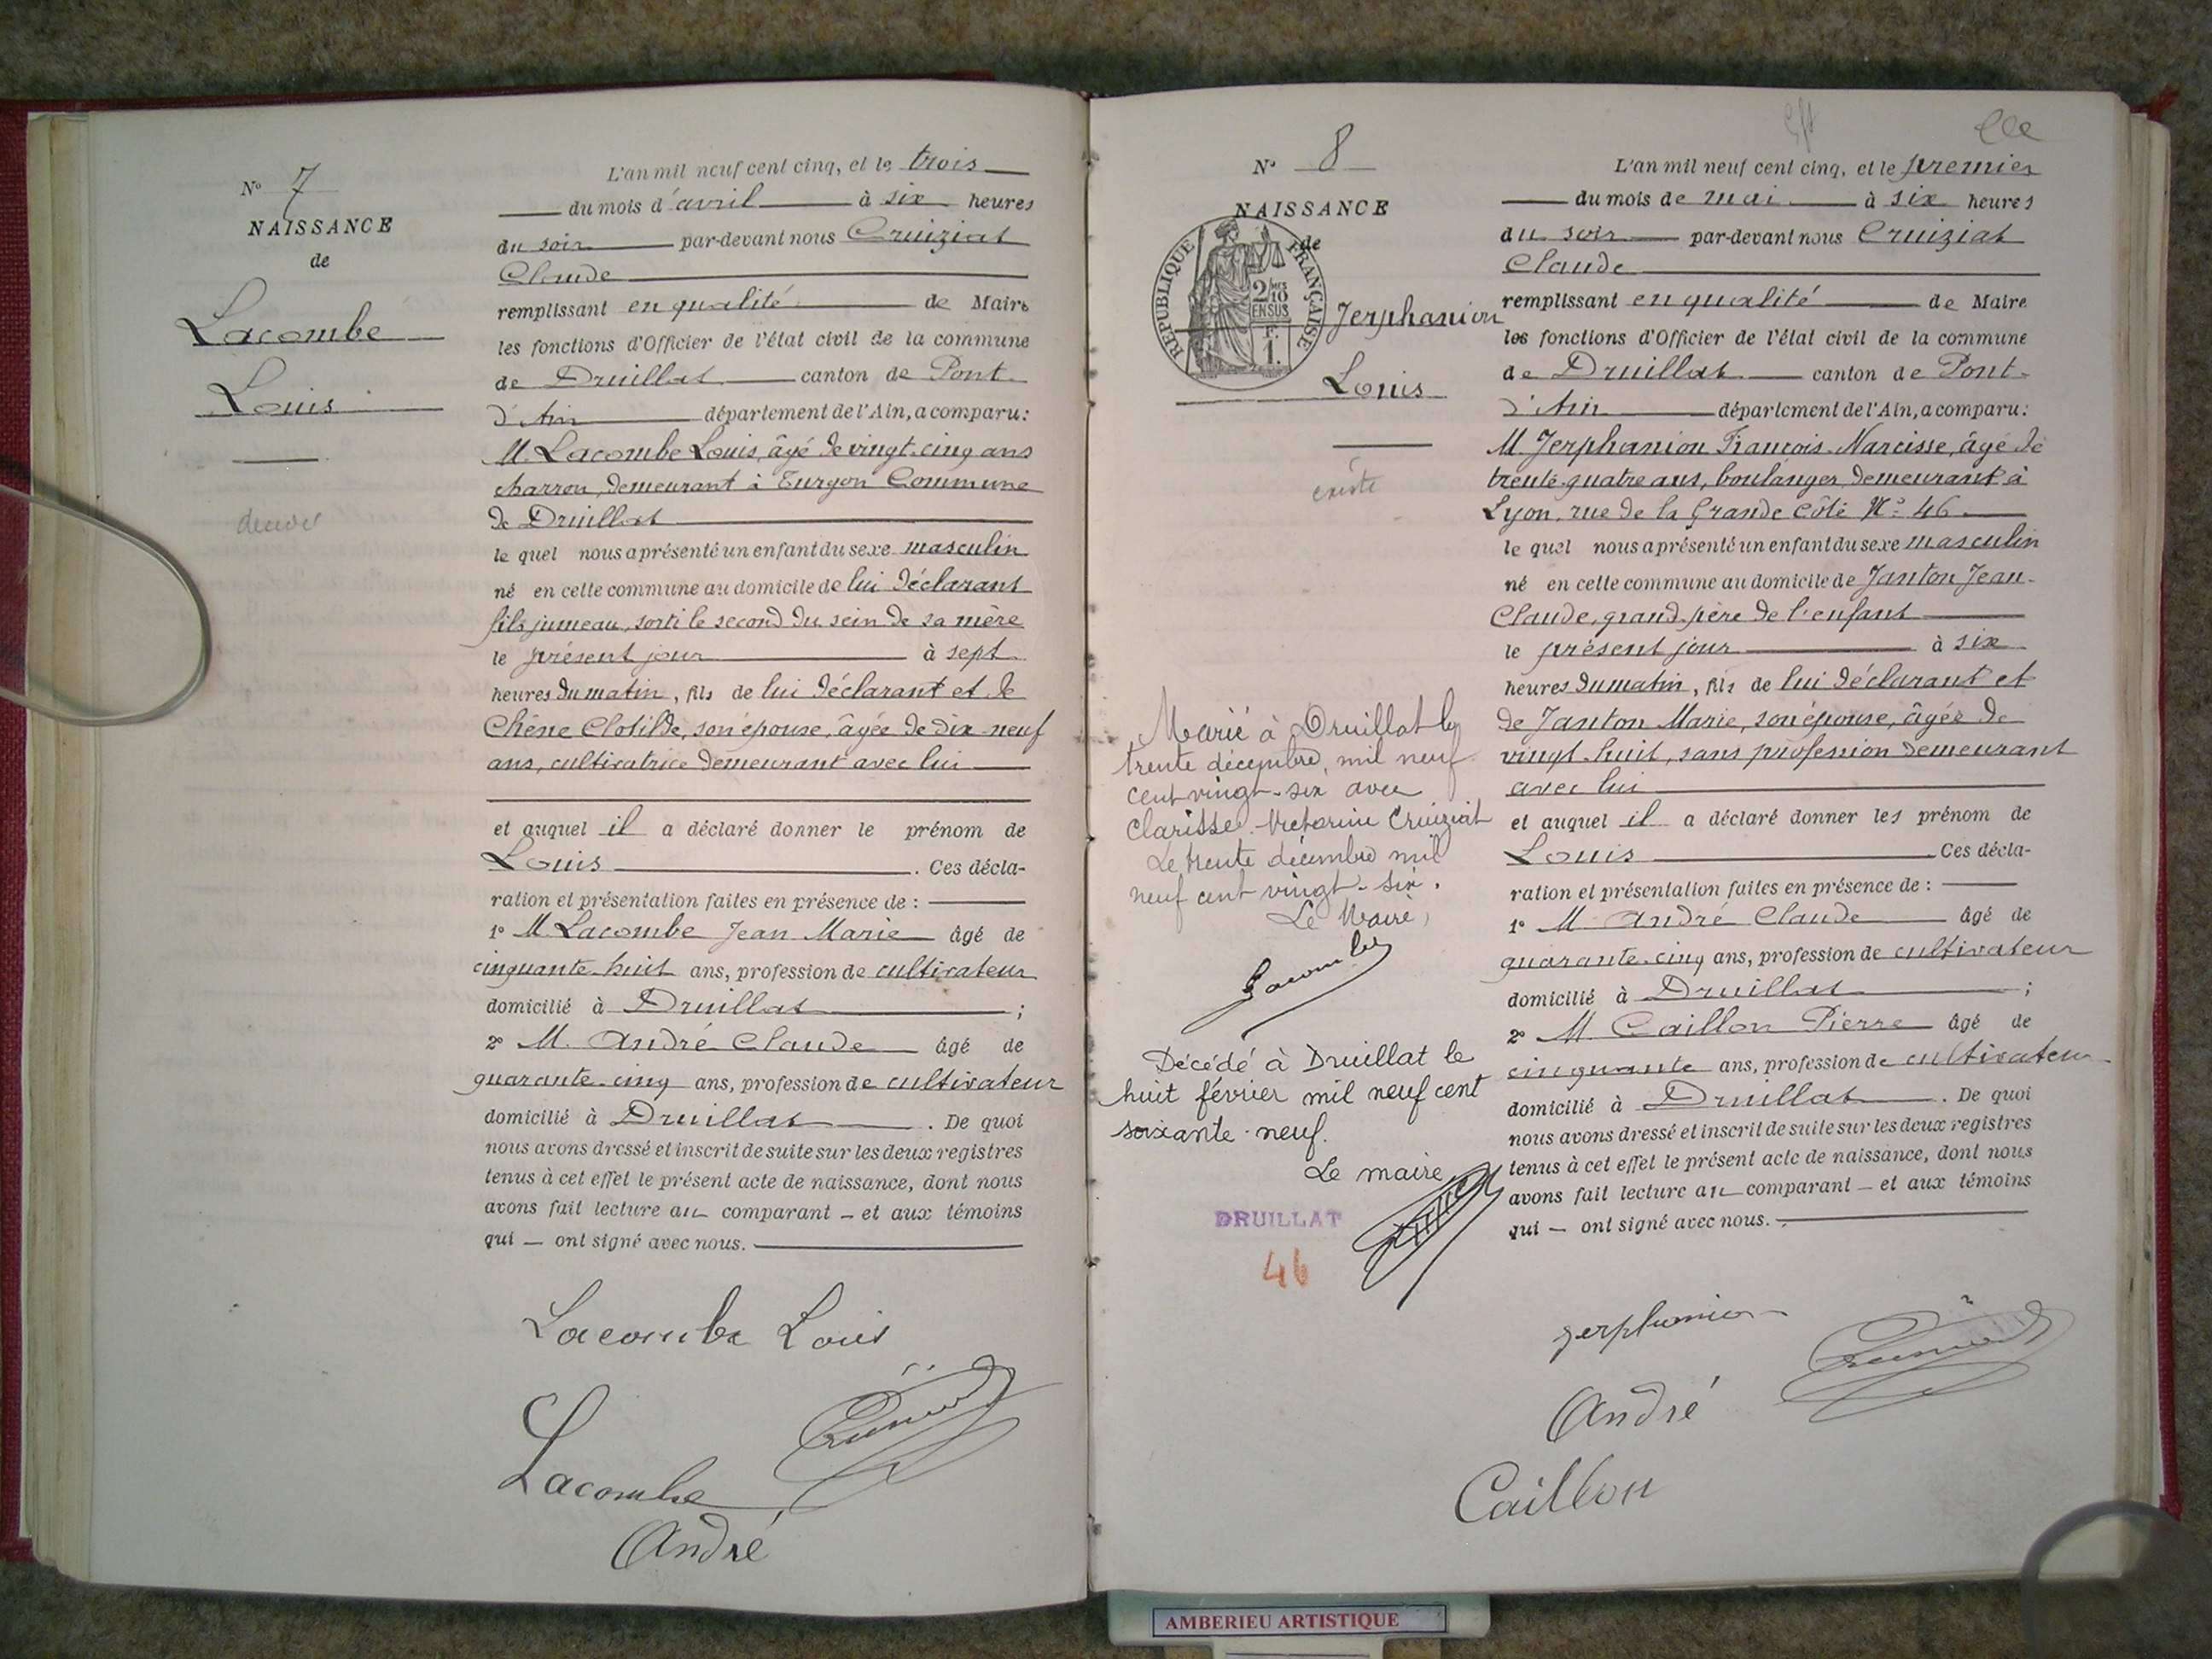 N° 7
NAISSANCE
de
Lacombe
Louis
L'an mil neuf cent cinq, et le trois
du mois d'avril à six heures
du soir par-devant nous Cruiziat
Claude
remplissant en qualité de Maire
les fonctions d'Officier de l'état civil de la commune
de Druillat canton de Pont-
d'Ain département de l'Ain, a comparu:
M. Lacombe Louis, âgé de vingt-cinq ans
charron, demeurant à Turgon Commune
de Druillat
le quel nous a présenté un enfant du sexe masculin
né en cette commune au domicile de lui déclarant
fils jumeau, sorti le second du sein de sa mère
le présent jour à sept
heures du matin, fils de lui déclarant et de
Chêne Clotilde, son épouse, âgée de dix-neuf
ans, cultivatrice demeurant avec lui
et auquel il a déclaré donner le prénom de
Louis. Ces décla-
ration et présentation faites en présence de :
1° M. Lacombe Jean Marie âgé de
cinquante-huit ans, profession de cultivateur
domicilié à Druillat ;
2° M. André Claude âgé de
quarante-cinq ans, profession de cultivateur
domicilié à Druillat. De quoi
nous avons dressé et inscrit de suite sur les deux registres
tenus à cet effet le présent acte de naissance, dont nous
avons fait lecture au comparant – et aux témoins
qui – ont signé avec nous.
Lacombe Louis
Lacombe
André
N° 8
NAISSANCE
de
RÉPUBLIQUE FRANÇAISE
2/10 MES
EN SUS
F.
1.
Jerphanion
Louis
existe
Marié à Druillat le
trente décembre, mil neuf
cent vingt-six avec
Clarisse-Victorine Cruiziat
Le trente décembre mil
neuf cent vingt-six.
Le Maire,
Lacombe
Décédé à Druillat le
huit février mil neuf cent
soixante-neuf.
Le maire
DRUILLAT
46
L'an mil neuf cent cinq, et le premier
du mois de mai à six heures
du soir par-devant nous Cruiziat
Claude
remplissant en qualité de Maire
les fonctions d'Officier de l'état civil de la commune
de Druillat canton de Pont-
d'Ain département de l'Ain, a comparu:
M. Jerphanion François-Narcisse, âgé de
trente-quatre ans, boulanger, demeurant à
Lyon, rue de la Grande Côte N° 46
le quel nous a présenté un enfant du sexe masculin
né en cette commune au domicile de Janton Jean-
Claude, grand-père de l'enfant
le présent jour à six
heures du matin, fils de lui déclarant et
de Janton Marie, son épouse, âgée de
vingt-huit, sans profession demeurant
avec lui
et auquel il a déclaré donner les prénom de
Louis Ces décla-
ration et présentation faites en présence de :
1° M. André Claude âgé de
quarante-cinq ans, profession de cultivateur
domicilié à Druillat ;
2° M. Caillon Pierre âgé de
cinquante ans, profession de cultivateur
domicilié à Druillat. De quoi
nous avons dressé et inscrit de suite sur les deux registres
tenus à cet effet le présent acte de naissance, dont nous
avons fait lecture au comparant – et aux témoins
qui – ont signé avec nous.
Jerphanion
André
Caillon
AMBERIEU ARTISTIQUE